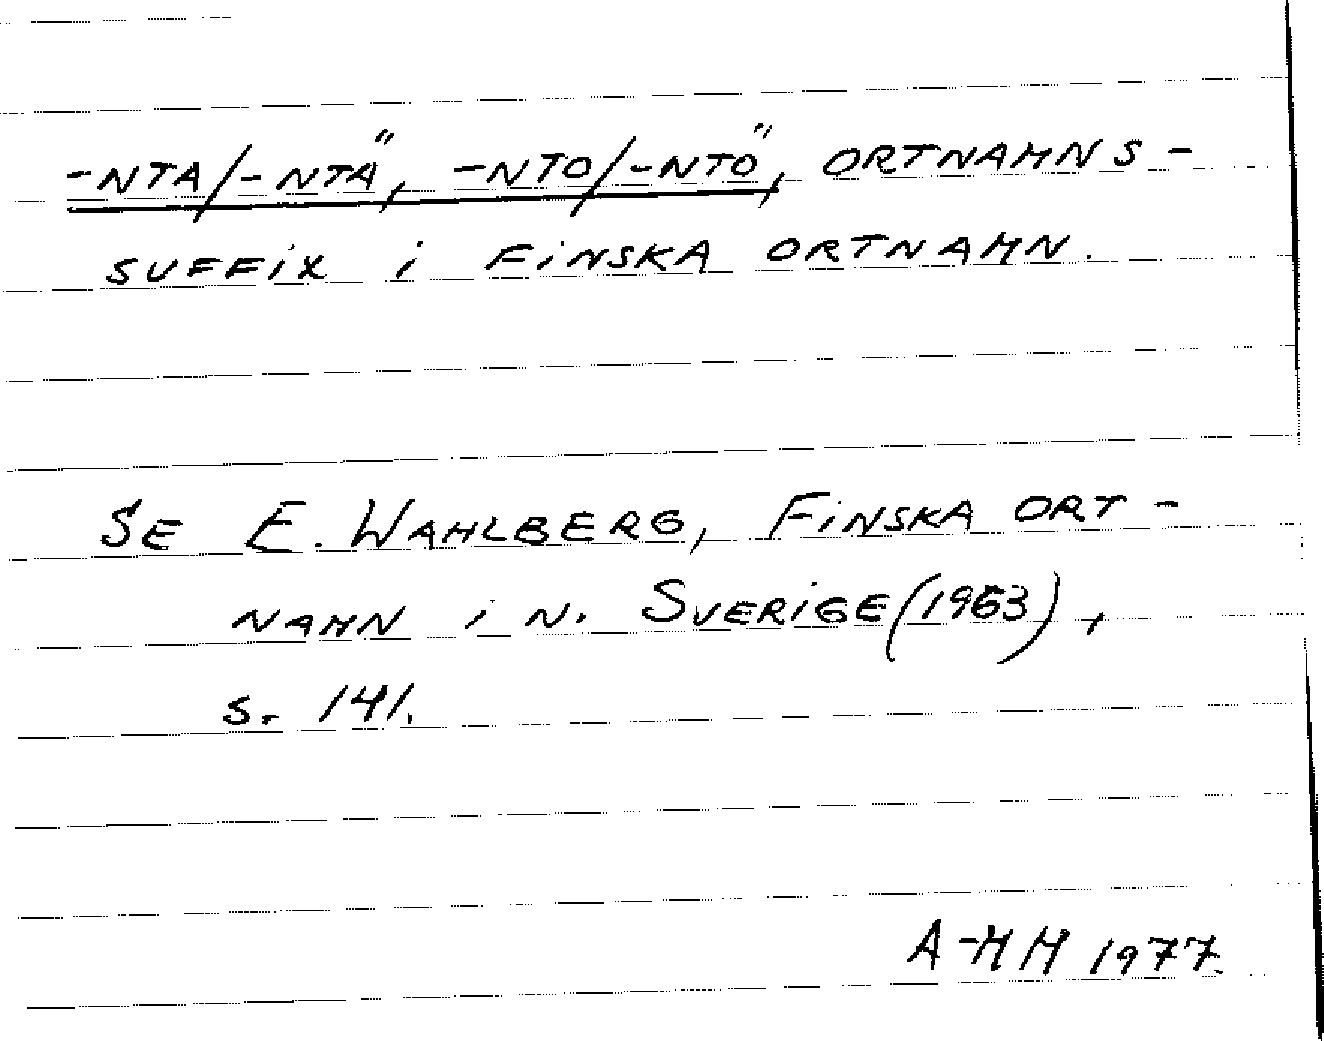 -NTA/-NTÄ, -NTO/-NTÖ, ORTNAMNS-
SUFFIX I FINSKA ORTNAMN.
SE E. WAHLBERG, FINSKA ORT-
NAMN I N. SVERIGE (1963),
S. 141.
A-MM 1977.